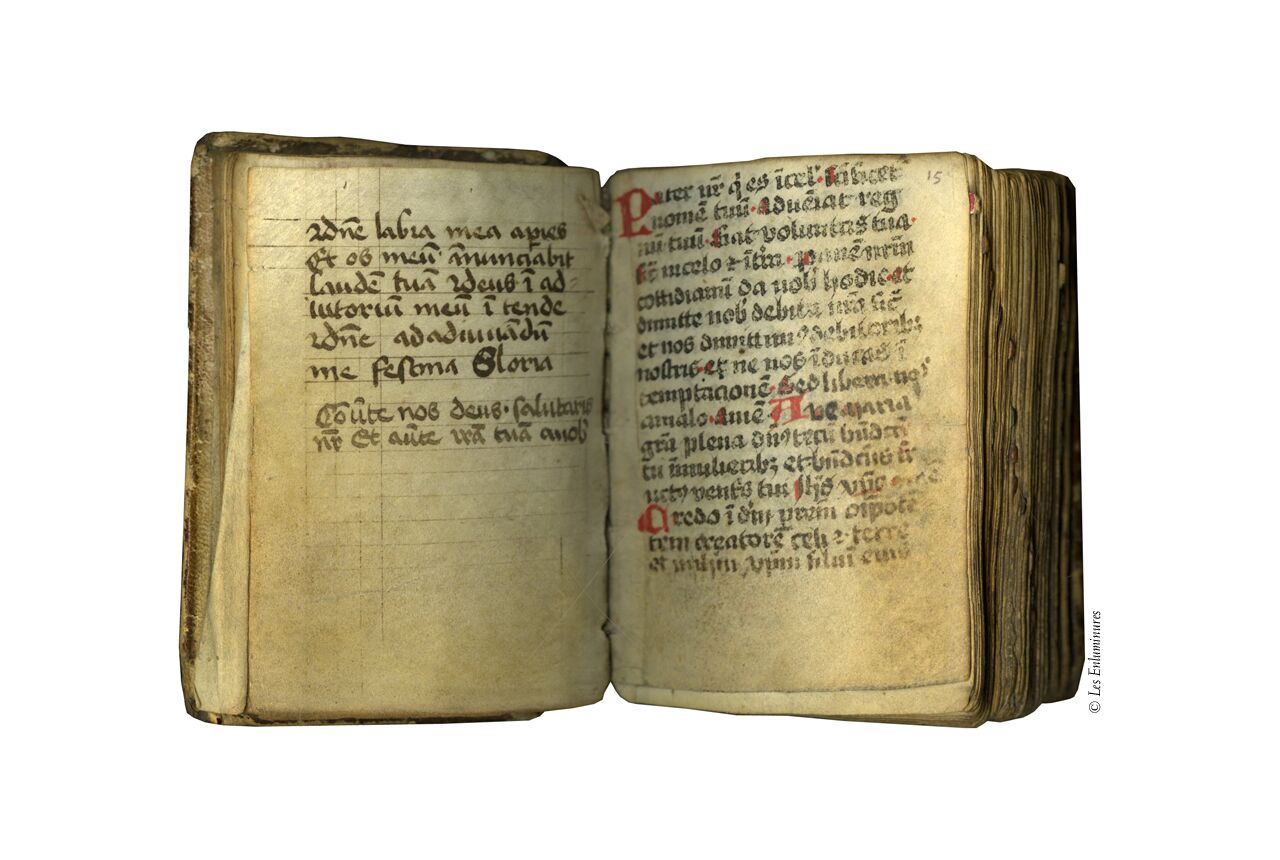 Dñe labia mea apies
Et os meũ ãnunciabit
laudẽ tuã Deus ĩ ad-
iutoriũ meũ ĩ tende
Dñe ad adiuuãdũ
me festina Gloria
Cõũte nos deus salutaris
nr̃ Et aũte irã tuã a nob
15
Pater nr̃ q̃ es ĩ cel
nomẽ tuũ adueniat reg
nũ tuũ fiat voluntas tua
sic̃ ĩ celo ⁊ ĩ t̃ra panẽ nrm̃
cottidianũ da nob hodie et
dimitte nob debita nr̃a sic̃
et nos dimittimꝰ debitoribꝫ
nostris et ne nos ĩducas ĩ
temptacionẽ Sed libera noꝰ
a malo amẽ Aue maria
gr̃a plena dñs tecũ bñdcã
tu ĩ mulieribꝫ et bñdcũs fr
uctꝰ ventrs̃ tui
Credo ĩ dm̃ prẽm oĩpotẽ
tem creatorẽ celi ⁊ terre
et filiũ eius
© Les Enluminures